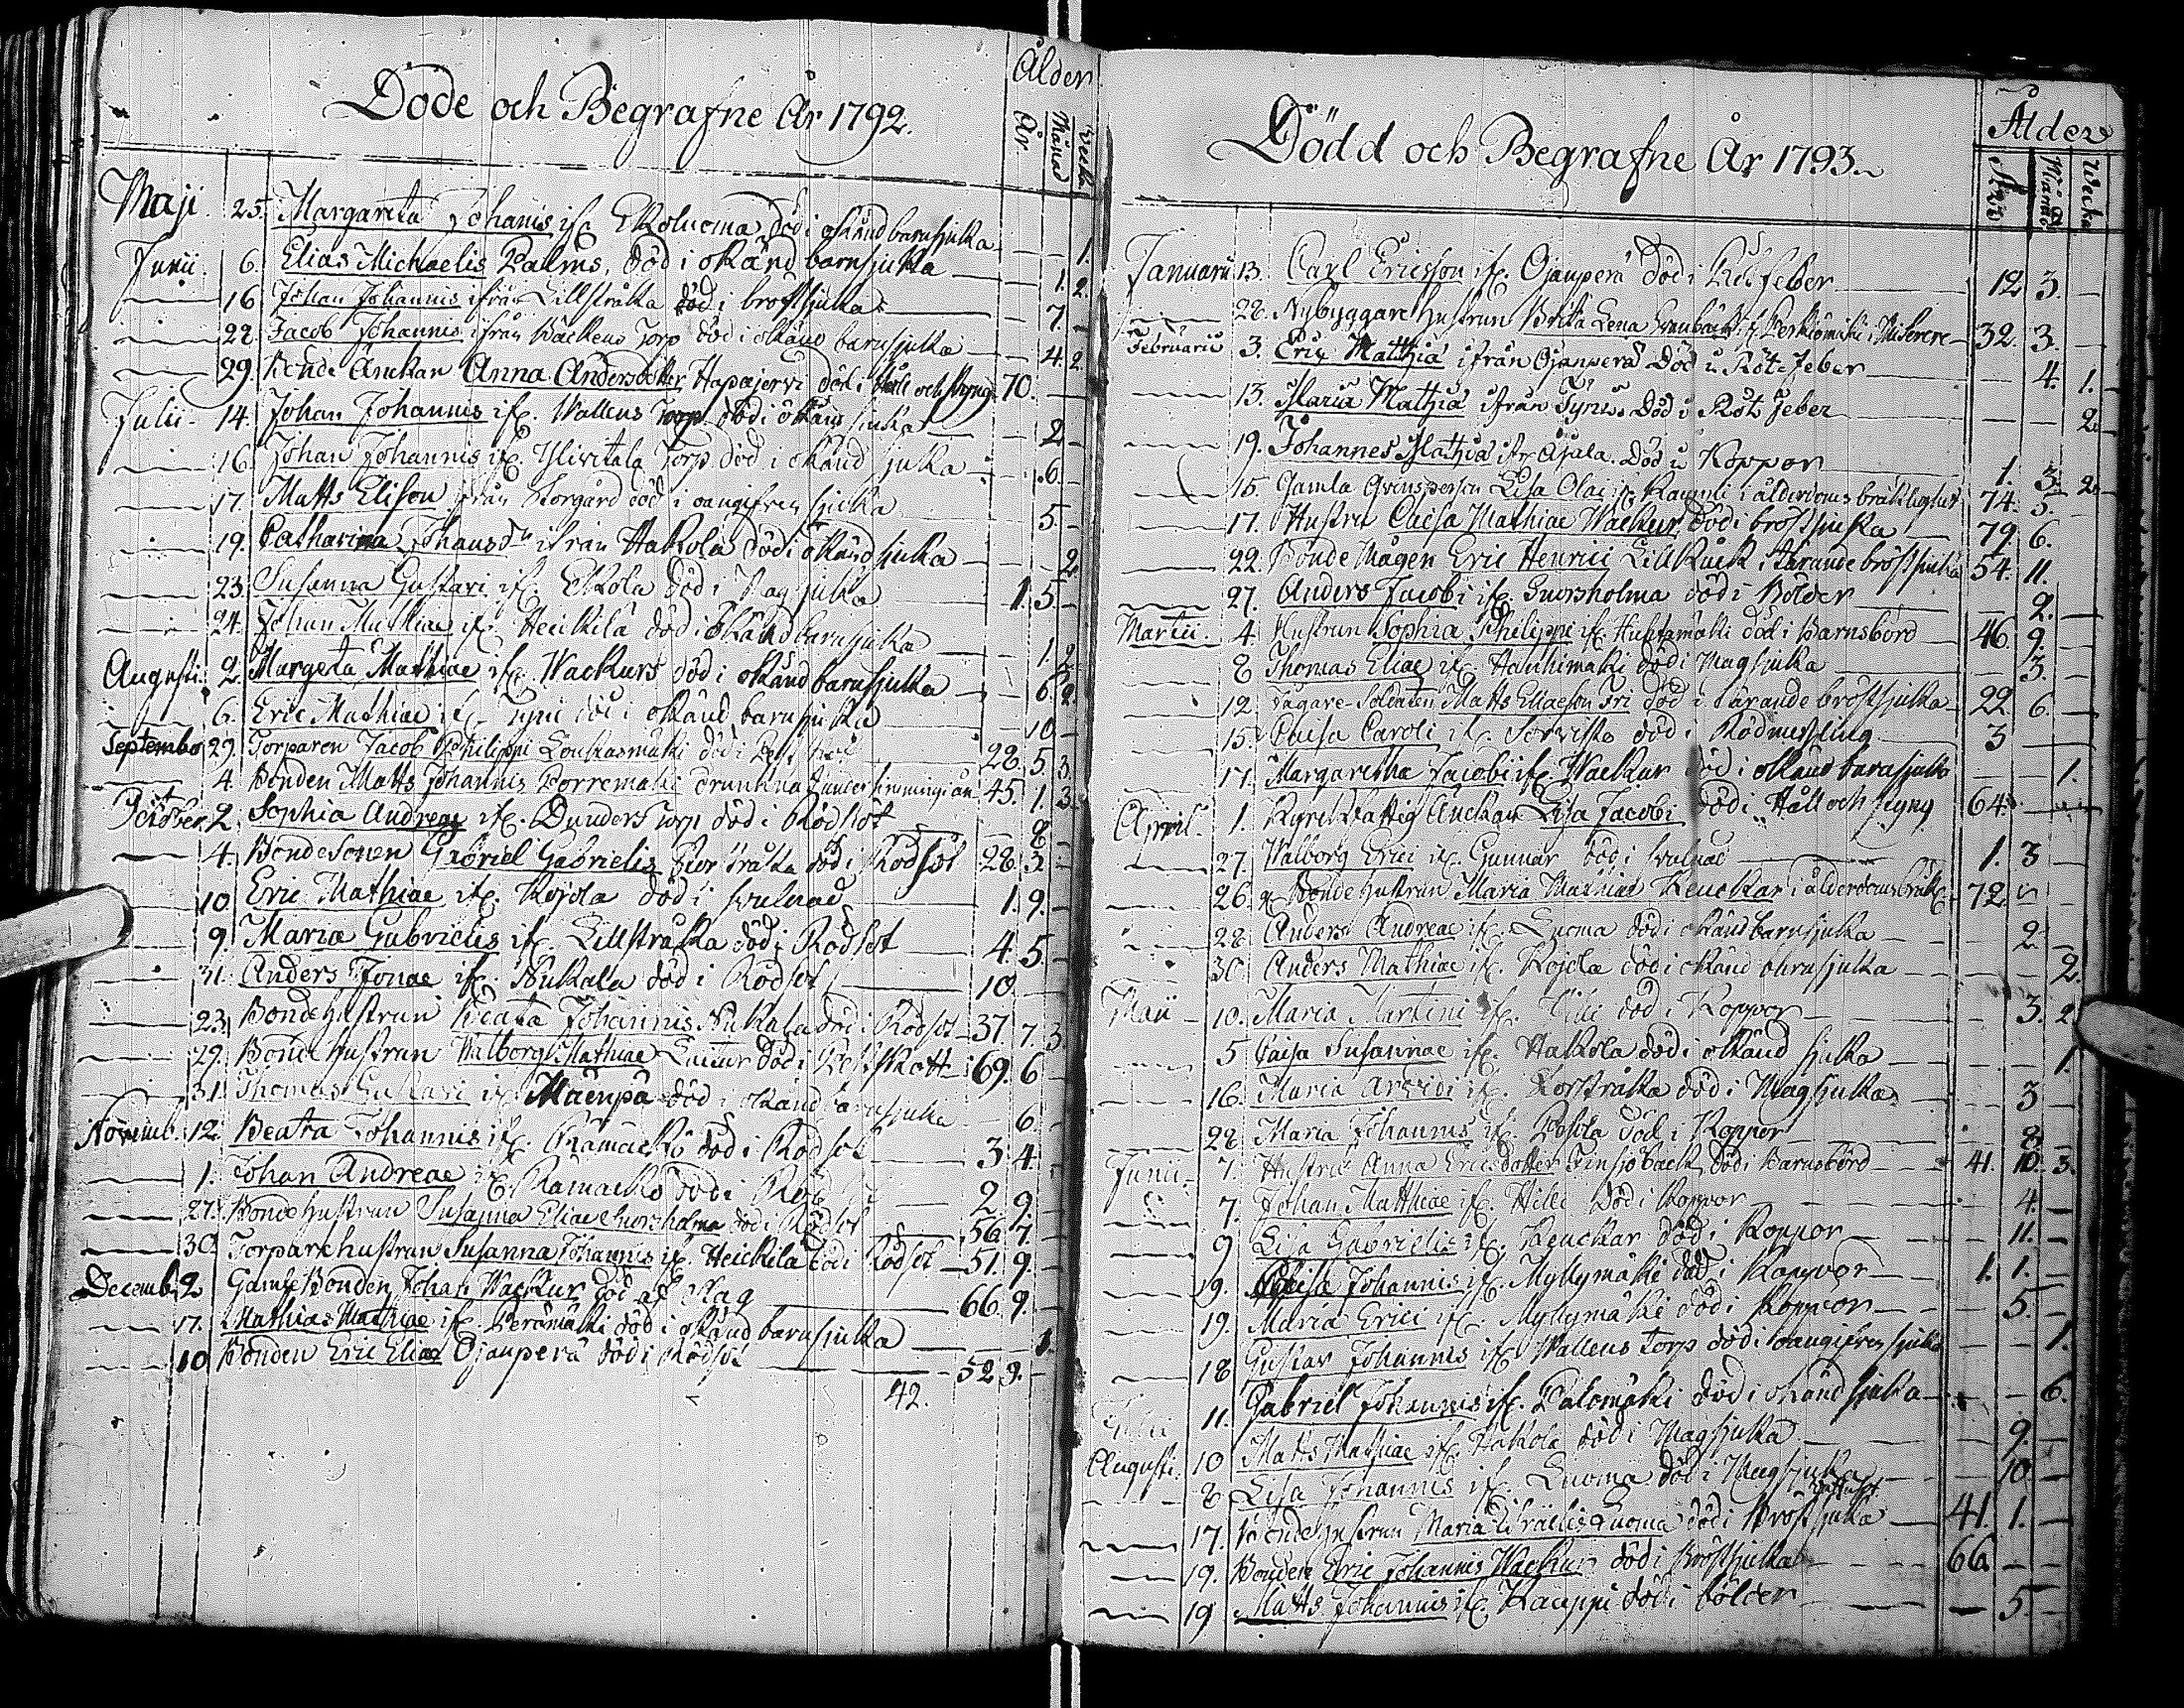 Döde och Begrafne År 1792.
Ålder
År Månad Wecka
Maji. 25. Margareta Johanis ifr. Ekoluoma död i okänd barnsjuka — — 1.
Junii. 6. Elias Michaelis Palms, död i okänd barnsjuka — 1. 2.
16. Johan Johannis ifrån Lillstråka död i bröstsjuka — 7. —
22. Jacob Johannis ifrån Backens Torp död i okänd barnsjuka — 4. 2.
29. Bonde Änkan Anna Andersdotter Hapajervi död i Håll och Styng 70. —
Julii. 14. Johan Johannis ifr. Wallens Torp död i okänd sjuka — 2 —
16. Johan Johannis ifr. Yliwitala Torp död i okänd sjuka — 6. —
17. Matts Elison ifrån Storgård död i oangifven sjuka — 5. —
19. Catharina Johansdr ifrån Hakola död i okänd sjuka — — 2
23. Susanna Gustavi ifr. Ekola död i Magsjuka 1. 5. —
24. Johan Mathiae ifr. Heickilä död i okänd barnsjuka — 1. 2
Augusti. 2. Margeta Mathiae ifr. Wackurs död i okänd barnsjuka — 6. 2
6. Eric Mathiae ifr. Tyni död i okänd barnsjuka — 10. —
September 29. Torparen Jacob Philippi Loukasmäki död i 28. 5. 3.
4. Bonden Matts Johannis Porremäki drunknat under simning i ån 45. 1. 3.
October. 2. Sophia Andreae ifr. Dunders Torp död i Rödsot — 8 —
4. Bondesonen Gabriel Gabrielis Storstråka död i Rödsot 28. 3. —
10. Eric Mathiae ifr. Kojola död i svulnad 1. 9. —
9. Maria Gabrielis ifr. Lillstråka död i Rödsot 4. 5. —
31. Anders Jonae ifr. Nukala död i Rödsot 10 — —
23. Bondehustrun Beata Johannis Nukala död i Rödsot 37. 7. 3.
29. Bondehustrun Walborg Mathiae död i 69. 6 —
31. Thomas Gustavi ifr. Mäenpä död i okänd barnsjuka — 6. —
Novemb. 12. Beata Johannis ifr. Rämäckö död i Rödsot 3 4. —
1. Johan Andreae ifr. Rämäckö död i Rödsot 2. 9. —
27. Bondehustrun Susanna Eliae Snorsholma död i Rödsot 56. 7. —
30. Torparehustrun Susanna Johannis ifr. Heickilä död i Rödsot 51. 9. —
Decemb. 2. Gamle Bonden Johan Wackur död af Slag 66. 9. —
17. Mathias Mathiae ifr. Perämäki död i okänd barnsjuka — — 1.
10 Bonden Eric Eliae Ojanperä död i Rödsot 52 9. —
42.
Född och Begrafne År 1793.
Ålder
Åhr Månad Wecka
Januarii 13. Carl Ericsson ifr. Ojanperä död i Röt feber 12 3. —
28. Nybyggare hustrun Brita Lena ifr. Perkiömäki i Miserere 32. 3. —
Februarii 3. Eric Matthiä ifrån Ojanperä Död i Röt-feber — 4. 1.
13. Maria Mathiä ifrån Tynis Död i Röt Feber — — 2.
19. Johannes Mathiä ifr. Ajala Död i Koppor 1. 3. 2.
15. Gamla Qvinsperson Lisa Olai ifr. Kaunli i ålderdoms bräcklighet 74. 5. —
17. Hustru Caisa Mathiae Wackur död i bröstsjuka 79. 6.
22. Bonde Mågen Eric Henrici Lillkåck i Tärande bröstsjuka 54. 11.
27. Anders Jacobi ifr. Snorsholma död i Bölder — 2. —
Martii. 4. Hustrun Sophia Philippi ifr. Huhtamäki död i Barnsbörd 46. 9. —
8 Thomas Eliae ifr. Hanhimäki död i Magsjuka — 3. —
12. Jägare-Soldaten Matts Eliaeson Fri död i tärande bröstsjuka 22 6. —
15. Caisa Caroli ifr. Sorvisto död i Rödmessling 3 — —
17. Margaretha Jacobi ifr. Wackur död i okänd barnsjuka — — 1.
April. 1. Kyrk Fattig Änckan Lisa Jacobi död i Håll och styng 64. — —
27. Walborg Erici ifr. Gunnar död i svulnad 1. 3 —
26. g. Bonde hustrun Maria Mathiae Kenckar i ålderdoms bräkl. 72.
28 Anders Andreae ifr. Luoma död i okänd barnsjuka — 2. —
30. Anders Mathiae ifr. Kojola död i okänd barnsjuka — — 2.
Maii 10. Maria Martini ifr. död i Koppor — 3. 2.
5 Caisa Susannae ifr. Hakola död i okänd sjuka — — 1.
16. Maria Arvidi ifr. Storstråka död i Magsjuka — 3 —
28 Maria Johannis ifr. Pesola död i Koppor — 8. —
Junii. 7. Hustru Anna Ericsdotter död i Barnsbörd 41. 10. 3.
7. Johan Matthiae ifr. Hilli Död i Koppor — 4. —
9 Lisa Gabrielis ifr. Kenckar död i Koppor — 11. —
19. Caisa Johannis ifr. Myllymäki död i Koppor 1. 1. —
19. Maria Erici ifr. Myllymäki död i Koppor — 5. —
18 Gustav Johannis ifr. Wallens torp död i oangifven sjuka — — 1.
Julii 11. Gabriel Johannis ifr. Palomäki död i okänd sjuka — — 6.
Augusti. 10 Matts Mathiae ifr. Hakola död i Magsjuka — 9. —
8 Lisa Johannis ifr. Luoma död i Magsjuka — 10. —
17. Bondehustrun Maria Israelis Luoma död i Bröstsjuka 41. 1. —
19. Bonden Eric Johannis Wackur död i Bröstsjuka 66. — —
19 Matts Johannis ifr. Kauppi död i bölder — 5. —